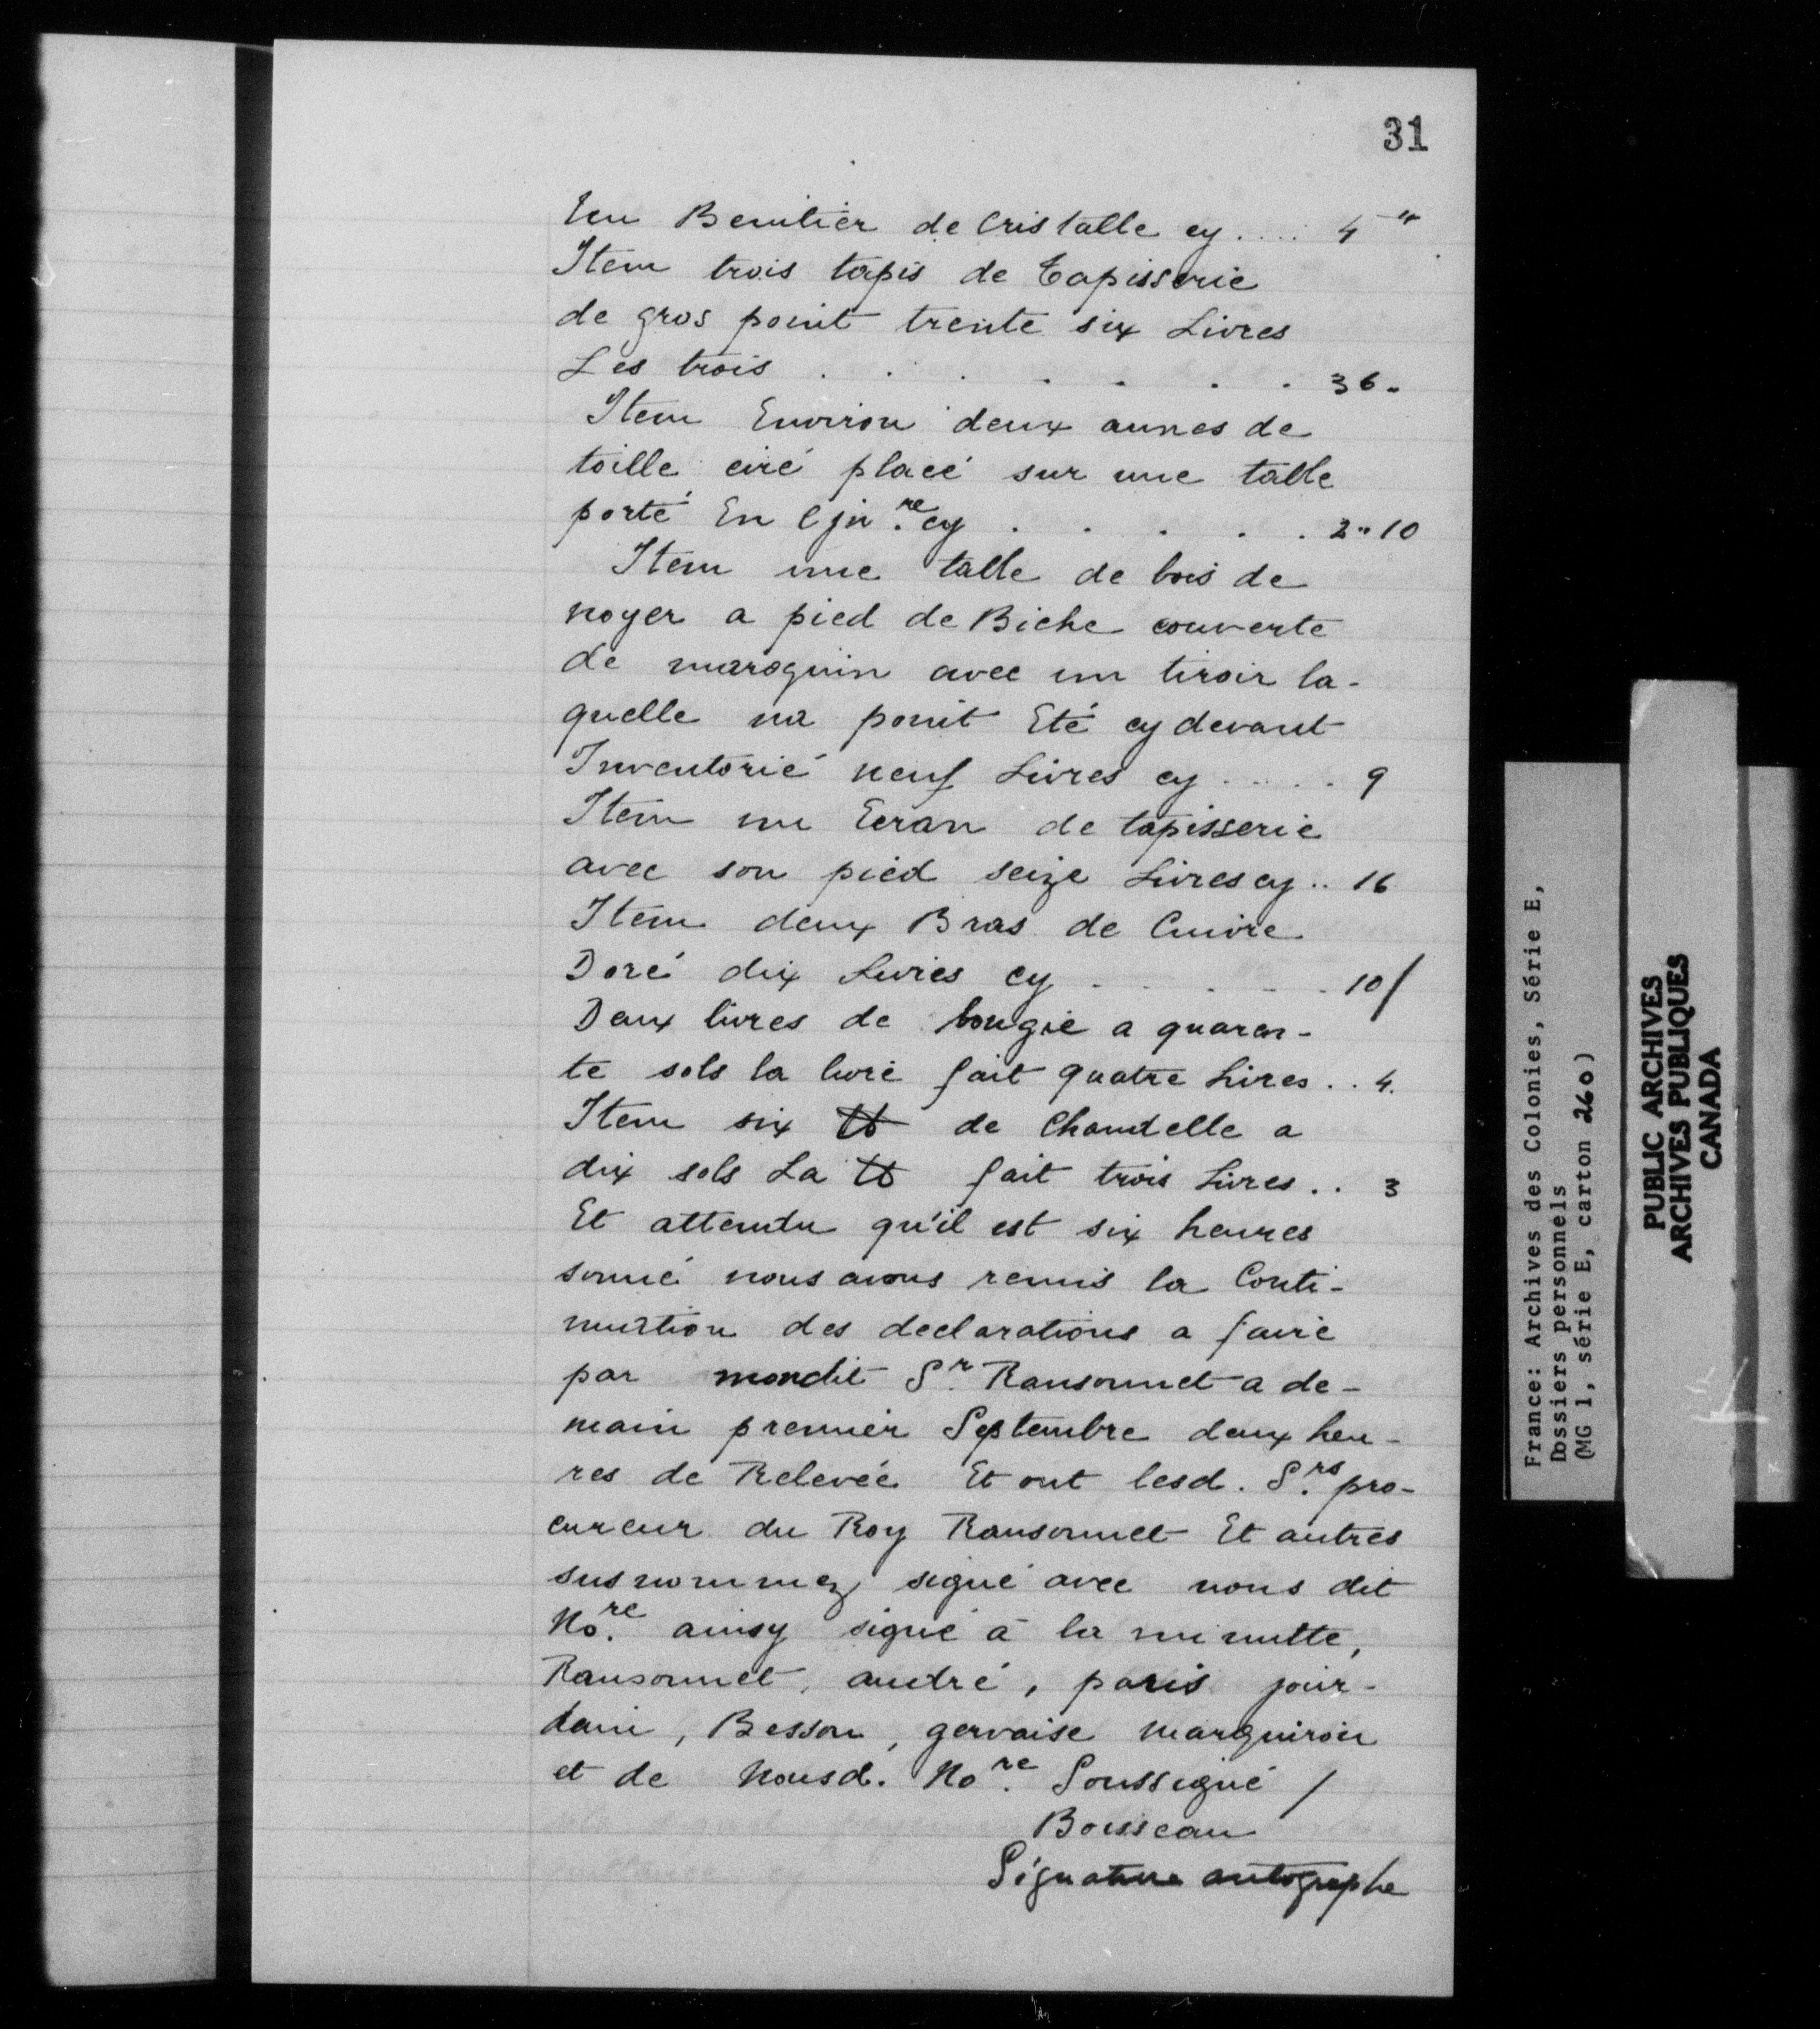 31
Un Benitier de Cristalle cy .... 4 ″
Item trois tapis de Tapisserie
de gros point trente six Livres
Les trois . . . . . . . 36 -
Item Environ deux aunes de
toille ciré placé sur une table
porté En l'jn.re cy . . . . . 2 " 10
Item une table de bois de
noyer a pied de Biche couverte
de maroquin avec un tiroir la-
quelle na point Eté cy devant
Inventorié neuf Livres cy ..... 9
Item un Ecran de tapisserie
avec son pied seize Livres cy .. 16
Item deux Bras de Cuivre
Doré dix Livres cy . . . . . 10 /
Deux livres de bougie a quaran-
te sols la livre fait quatre Livres .. 4.
Item six ℔ de Chandelle a
dix sols La ℔ fait trois Livres .. 3
Et attendu qu'il est six heures
sonné nous avons remis la Conti-
nuation des declarations a faire
par mondit S.r Ransonnet a de-
main premier Septembre deux heu-
res de Relevée Et ont lesd. S.rs pro-
cureur du Roy Ransonnet Et autres
susnommez signé avec nous dit
No.re ainsy signé à la minutte,
Ransonnet, andré, paris jour-
dain, Besson, gervaise Marquiron
et de Nousd. No.re Soussigné /
Boisseau
Signature autographe
France: Archives des Colonies, Série E,
Dossiers personnels
(MG 1, série E, carton 260)
PUBLIC ARCHIVES
ARCHIVES PUBLIQUES
CANADA